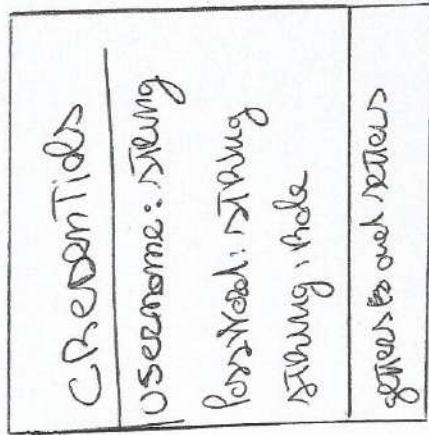 Credentials
username: String
Password: String
String: Role
getters and setters